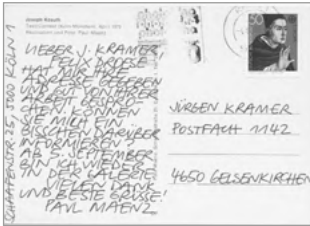 Joseph Kosuth
LIEBER J. KRAMER
FELIX DROESE
HAT MIR IHRE
GEGEBEN
UND GUT VON IHRER
ARBEIT GESPRO-
CHEN. KÖNNEN
SIE MICH EIN
BISSCHEN DARÜBER
INFORMIEREN?
AB 5. SEPTEMBER
BIN ICH WIEDER
IN DER GALERIE.
VIELEN DANK
UND BESTE GRÜSSE!
PAUL MAENZ
SCHAAFENSTR. 25, 5000 KÖLN 1
50
JÜRGEN KRAMER
POSTFACH 1142
4650 GELSENKIRCHEN